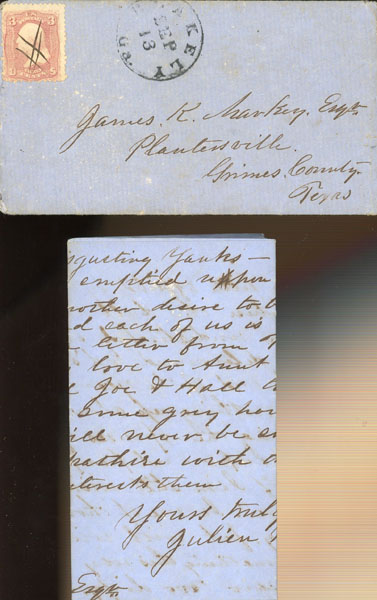 3 3
KELY
SEP
13
James K. Markey. Esqr
Plantersville.
Grimes County.
Texas
sgusting Yanks—
emptied upon
nother desire to
d each of us is
letter from
love to Aunt
Joe & Hall
some grey
ill never be
pathise with
terests them
Yours truly
Julien
Esqr